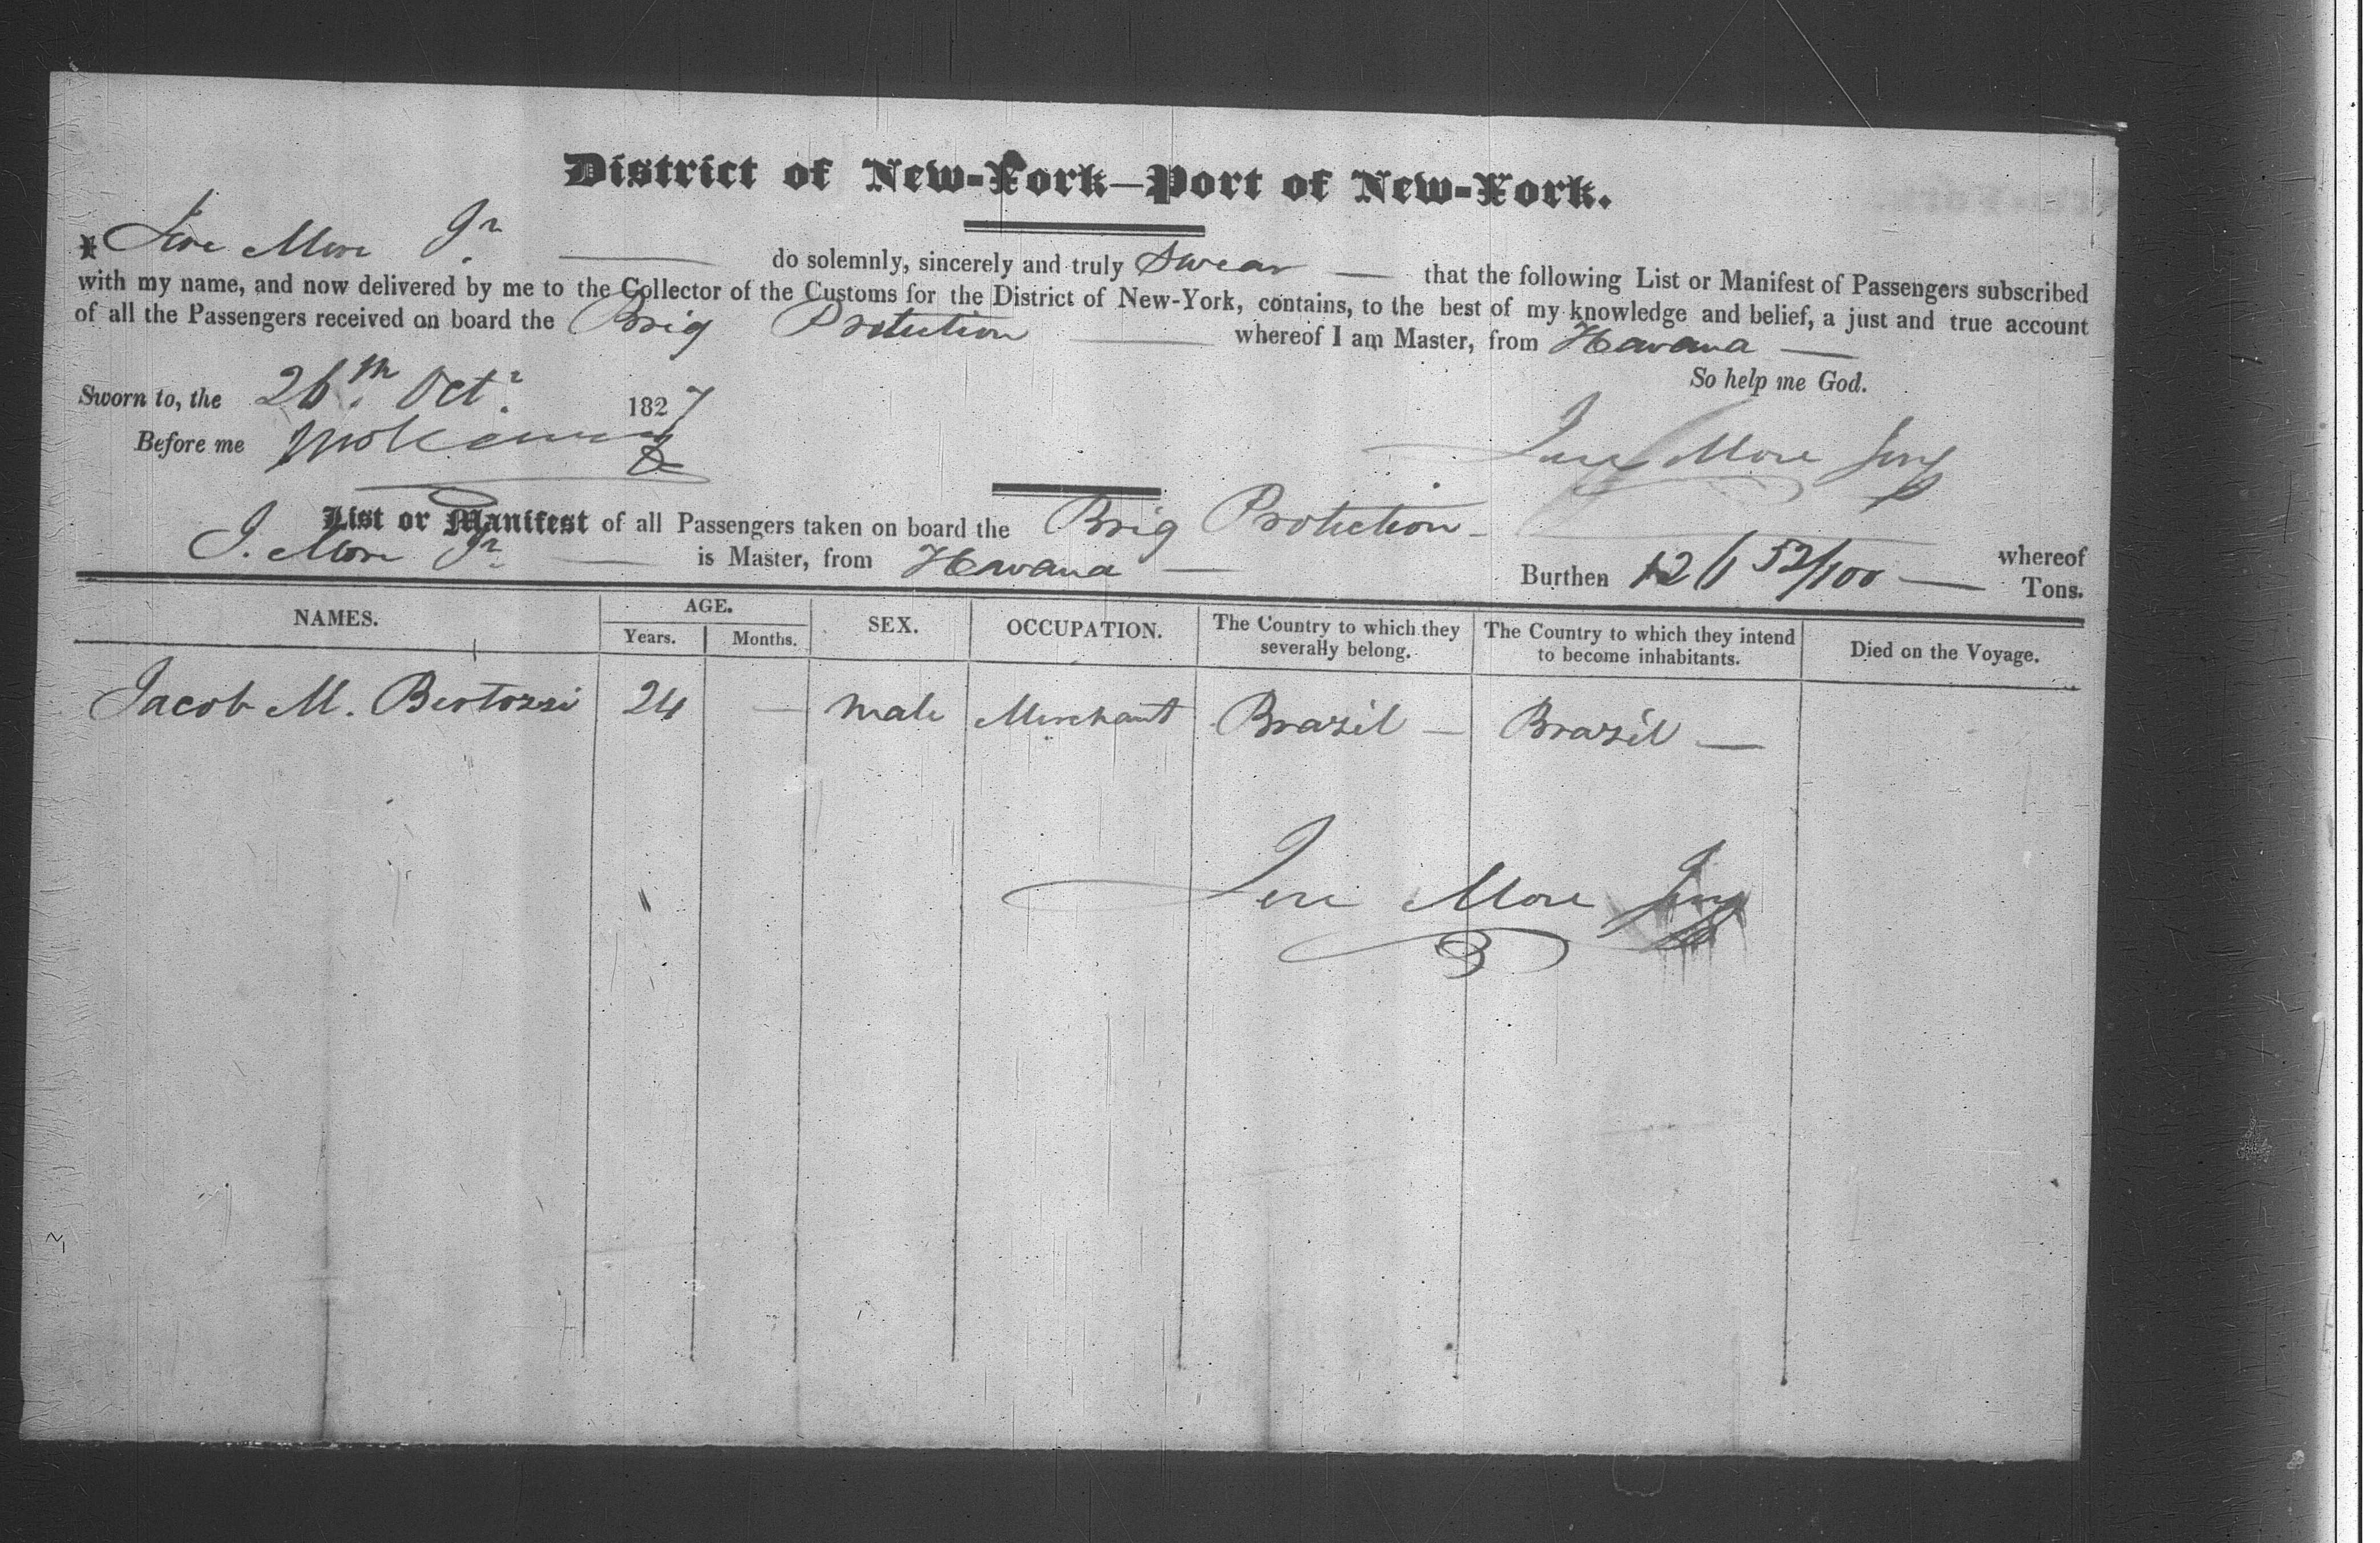 District of New-York—Port of New-York.
I Jere More Jr. — do solemnly, sincerely and truly Swear — that the following List or Manifest of Passengers subscribed
with my name, and now delivered by me to the Collector of the Customs for the District of New-York, contains, to the best of my knowledge and belief, a just and true account
of all the Passengers received on board the Brig Protection — whereof I am Master, from Havana —
So help me God.
Sworn to, the 26th. Octr. 1827
Before me
Jere More Junr
List or Manifest of all Passengers taken on board the Brig Protection — whereof
J. More Jr. — is Master, from Havana — Burthen 126 52/100 — Tons.
NAMES. AGE. SEX. OCCUPATION. The Country to which they severally belong. The Country to which they intend to become inhabitants. Died on the Voyage.
Years. Months.
Jacob M. Bertozzi 24 — male Merchant Brazil — Brazil —
Jere More Junr